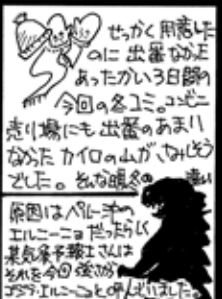 せっかく用意した
のに出番なかった
あったかい3日間の
今回の冬コミ。コンビニ
売り場にも出番のあまり
なかったカイロの山がさみしそう
でした。そんな暖冬の
原因はペルー沖の
エルニーニョだったらしく
某気象予報士さんは
それを今回強さから
ゴジラ・エルニーニョと呼んでいました。